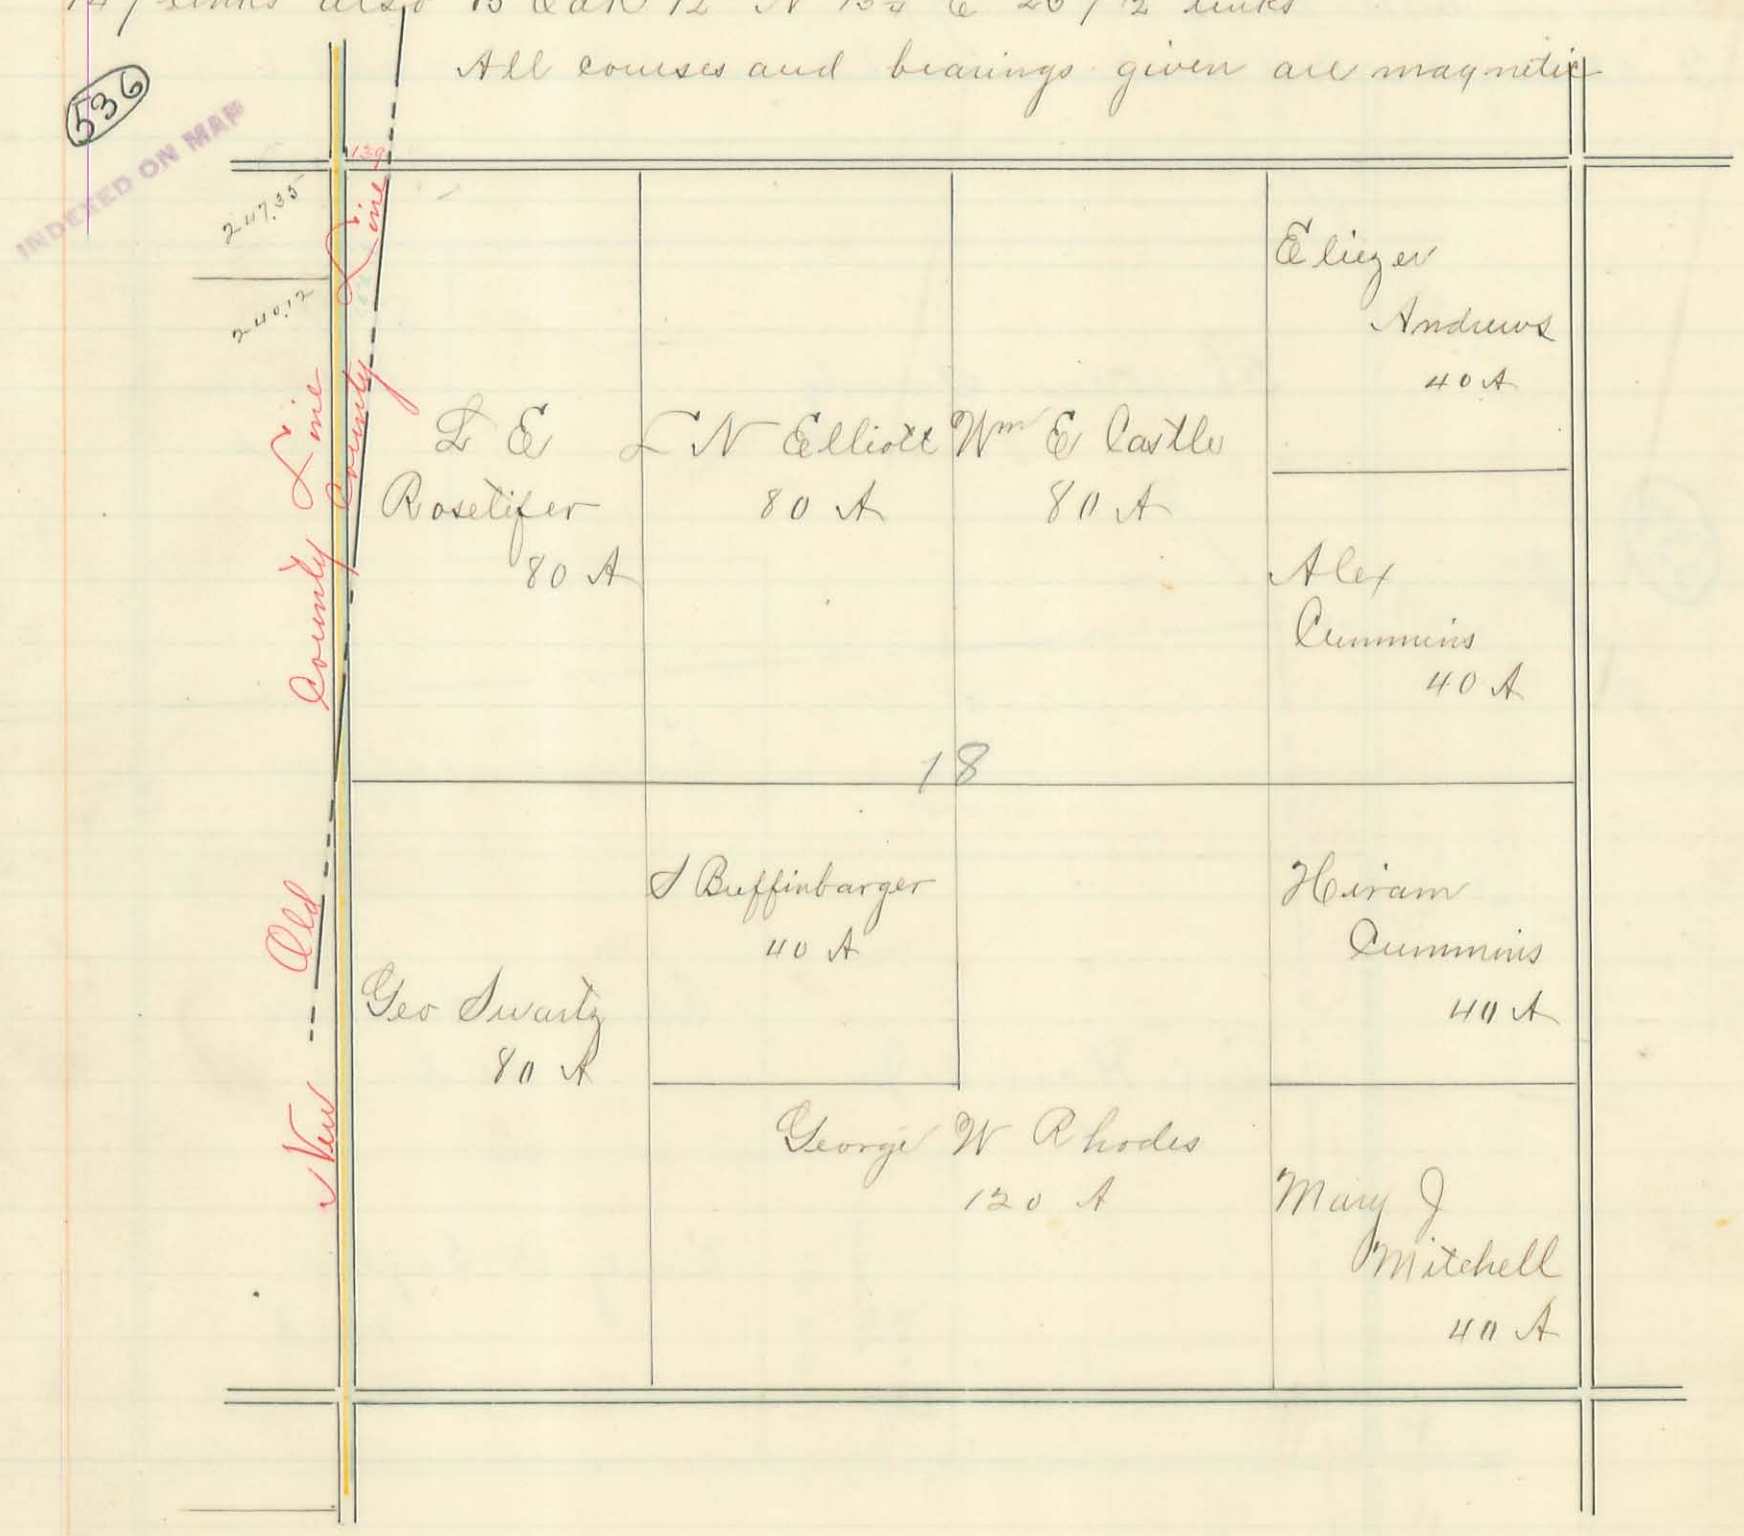 links also B Oak 12" N 13¾ E 267½ links
All courses and bearings given are magnetic
536
INDEXED ON MAP
139
247.35
240.12
Old County Line
New County Line
L E
Roselifer
80 A
L N Elliott
80 A
Wm E Castle
80 A
Eliezer
Andrews
40 A
Alex
Cummins
40 A
18
Geo Swartz
80 A
S Buffinbarger
40 A
George W Rhodes
120 A
Hiram
Cummins
40 A
Mary J
Mitchell
40 A